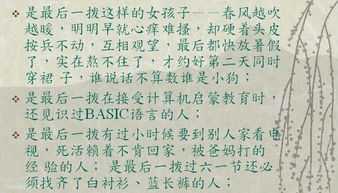 是最后一拨这样的女孩子——春风越吹
越暖，明明早就心痒难搔，却硬着头皮
按兵不动，互相观望，最后都快放暑假
了，实在熬不住了，才约好第二天同时
穿裙 子，谁说话不算数谁是小狗；
是最后一拨在接受计算机启蒙教育时
还见识过BASIC语言的人；
是最后一拨有过小时候要到别人家看电
视，死活赖着不肯回家，被爸妈打的
经 验的人； 是最后一拨过六一节还必
须找齐了白衬衫、蓝长裤的人；